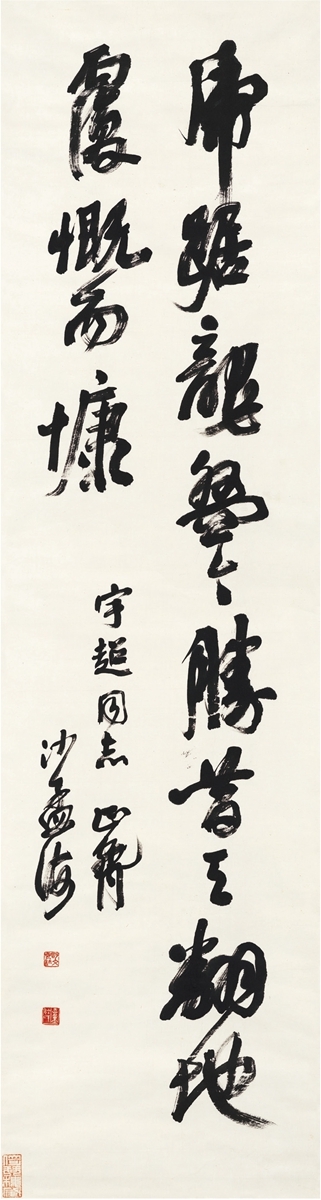 虎踞龍盤今勝昔天翻地
覆慨而慷
宇超同志正臂
沙孟海